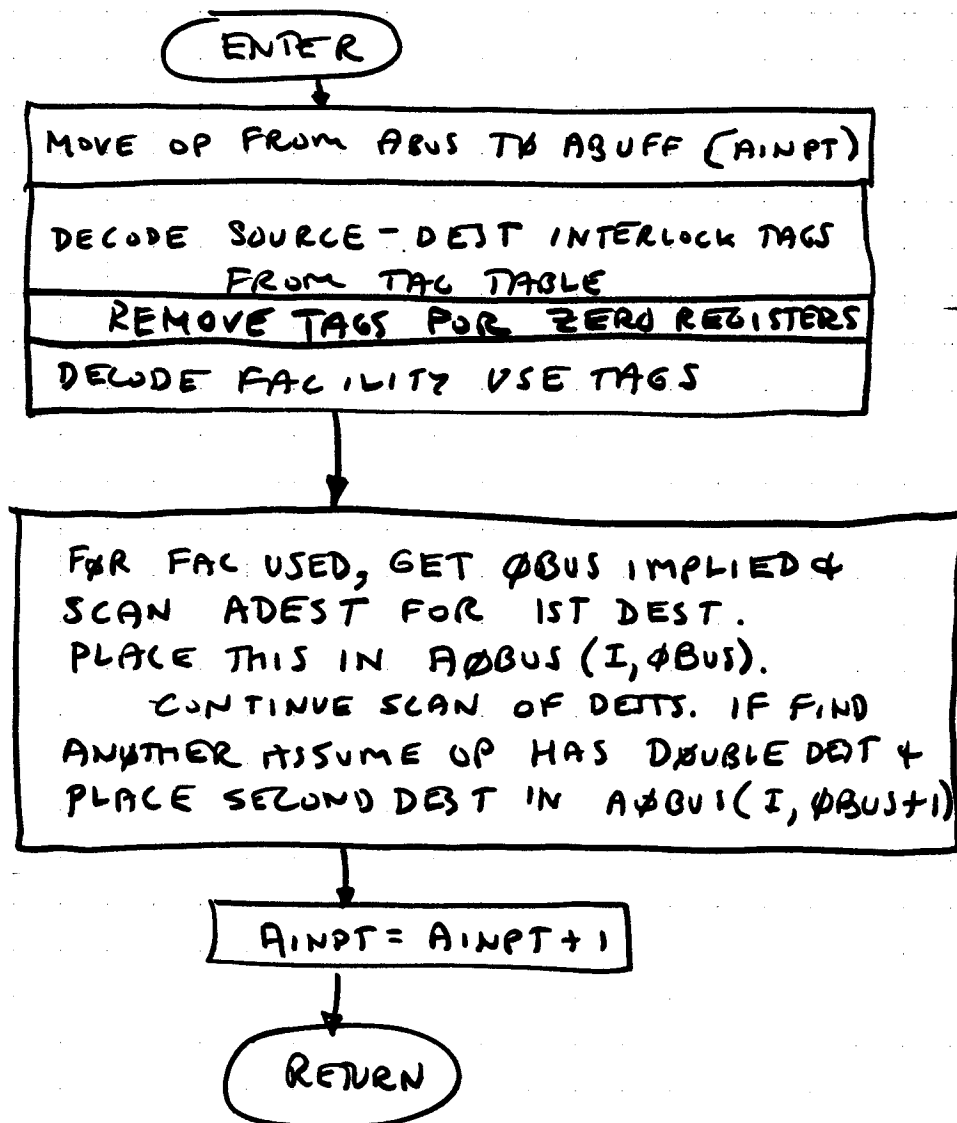 ENTER
MOVE OP FROM ABUS TØ ABUFF (AINPT)
DECODE SOURCE-DEST INTERLOCK TAGS
FROM TAG TABLE
REMOVE TAGS FOR ZERO REGISTERS
DECODE FACILITY USE TAGS
FØR FAC USED, GET ØBUS IMPLIED &
SCAN ADEST FOR 1ST DEST.
PLACE THIS IN AØBUS (I, ØBUS).
CONTINUE SCAN OF DESTS. IF FIND
ANØTHER ASSUME OP HAS DØUBLE DEST &
PLACE SECOND DEST IN AØBUS (I, ØBUS+1)
AINPT = AINPT + 1
RETURN